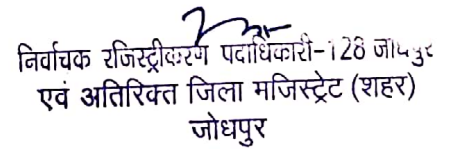 निर्वाचक रजिस्ट्रीकरण पदाधिकारी-128 जोधपुर
एवं अतिरिक्त जिला मजिस्ट्रेट (शहर)
जोधपुर